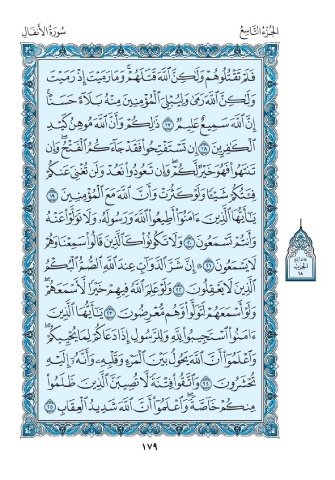 الجزء التاسع
سورة الأنفال
فَلَمْ تَقْتُلُوهُمْ وَلَٰكِنَّ ٱللَّهَ قَتَلَهُمْ ۚ وَمَا رَمَيْتَ إِذْ رَمَيْتَ
وَلَٰكِنَّ ٱللَّهَ رَمَىٰ ۚ وَلِيُبْلِىَ ٱلْمُؤْمِنِينَ مِنْهُ بَلَآءً حَسَنًا ۚ
إِنَّ ٱللَّهَ سَمِيعٌ عَلِيمٌ ١٧ ذَٰلِكُمْ وَأَنَّ ٱللَّهَ مُوهِنُ كَيْدِ
ٱلْكَٰفِرِينَ ١٨ إِن تَسْتَفْتِحُوا۟ فَقَدْ جَآءَكُمُ ٱلْفَتْحُ ۖ وَإِن
تَنتَهُوا۟ فَهُوَ خَيْرٌ لَّكُمْ ۖ وَإِن تَعُودُوا۟ نَعُدْ وَلَن تُغْنِىَ عَنكُمْ
فِئَتُكُمْ شَيْـًٔا وَلَوْ كَثُرَتْ وَأَنَّ ٱللَّهَ مَعَ ٱلْمُؤْمِنِينَ ١٩
يَٰٓأَيُّهَا ٱلَّذِينَ ءَامَنُوٓا۟ أَطِيعُوا۟ ٱللَّهَ وَرَسُولَهُۥ وَلَا تَوَلَّوْا۟ عَنْهُ
وَأَنتُمْ تَسْمَعُونَ ٢٠ وَلَا تَكُونُوا۟ كَٱلَّذِينَ قَالُوا۟ سَمِعْنَا وَهُمْ
لَا يَسْمَعُونَ ٢١ إِنَّ شَرَّ ٱلدَّوَآبِّ عِندَ ٱللَّهِ ٱلصُّمُّ ٱلْبُكْمُ
ٱلَّذِينَ لَا يَعْقِلُونَ ٢٢ وَلَوْ عَلِمَ ٱللَّهُ فِيهِمْ خَيْرًا لَّأَسْمَعَهُمْ ۖ
وَلَوْ أَسْمَعَهُمْ لَتَوَلَّوا۟ وَّهُم مُّعْرِضُونَ ٢٣ يَٰٓأَيُّهَا ٱلَّذِينَ
ءَامَنُوا۟ ٱسْتَجِيبُوا۟ لِلَّهِ وَلِلرَّسُولِ إِذَا دَعَاكُمْ لِمَا يُحْيِيكُمْ ۖ
وَٱعْلَمُوٓا۟ أَنَّ ٱللَّهَ يَحُولُ بَيْنَ ٱلْمَرْءِ وَقَلْبِهِۦ وَأَنَّهُۥٓ إِلَيْهِ
تُحْشَرُونَ ٢٤ وَٱتَّقُوا۟ فِتْنَةً لَّا تُصِيبَنَّ ٱلَّذِينَ ظَلَمُوا۟
مِنكُمْ خَآصَّةً ۖ وَٱعْلَمُوٓا۟ أَنَّ ٱللَّهَ شَدِيدُ ٱلْعِقَابِ ٢٥
الحزب
١٨
١٧٩